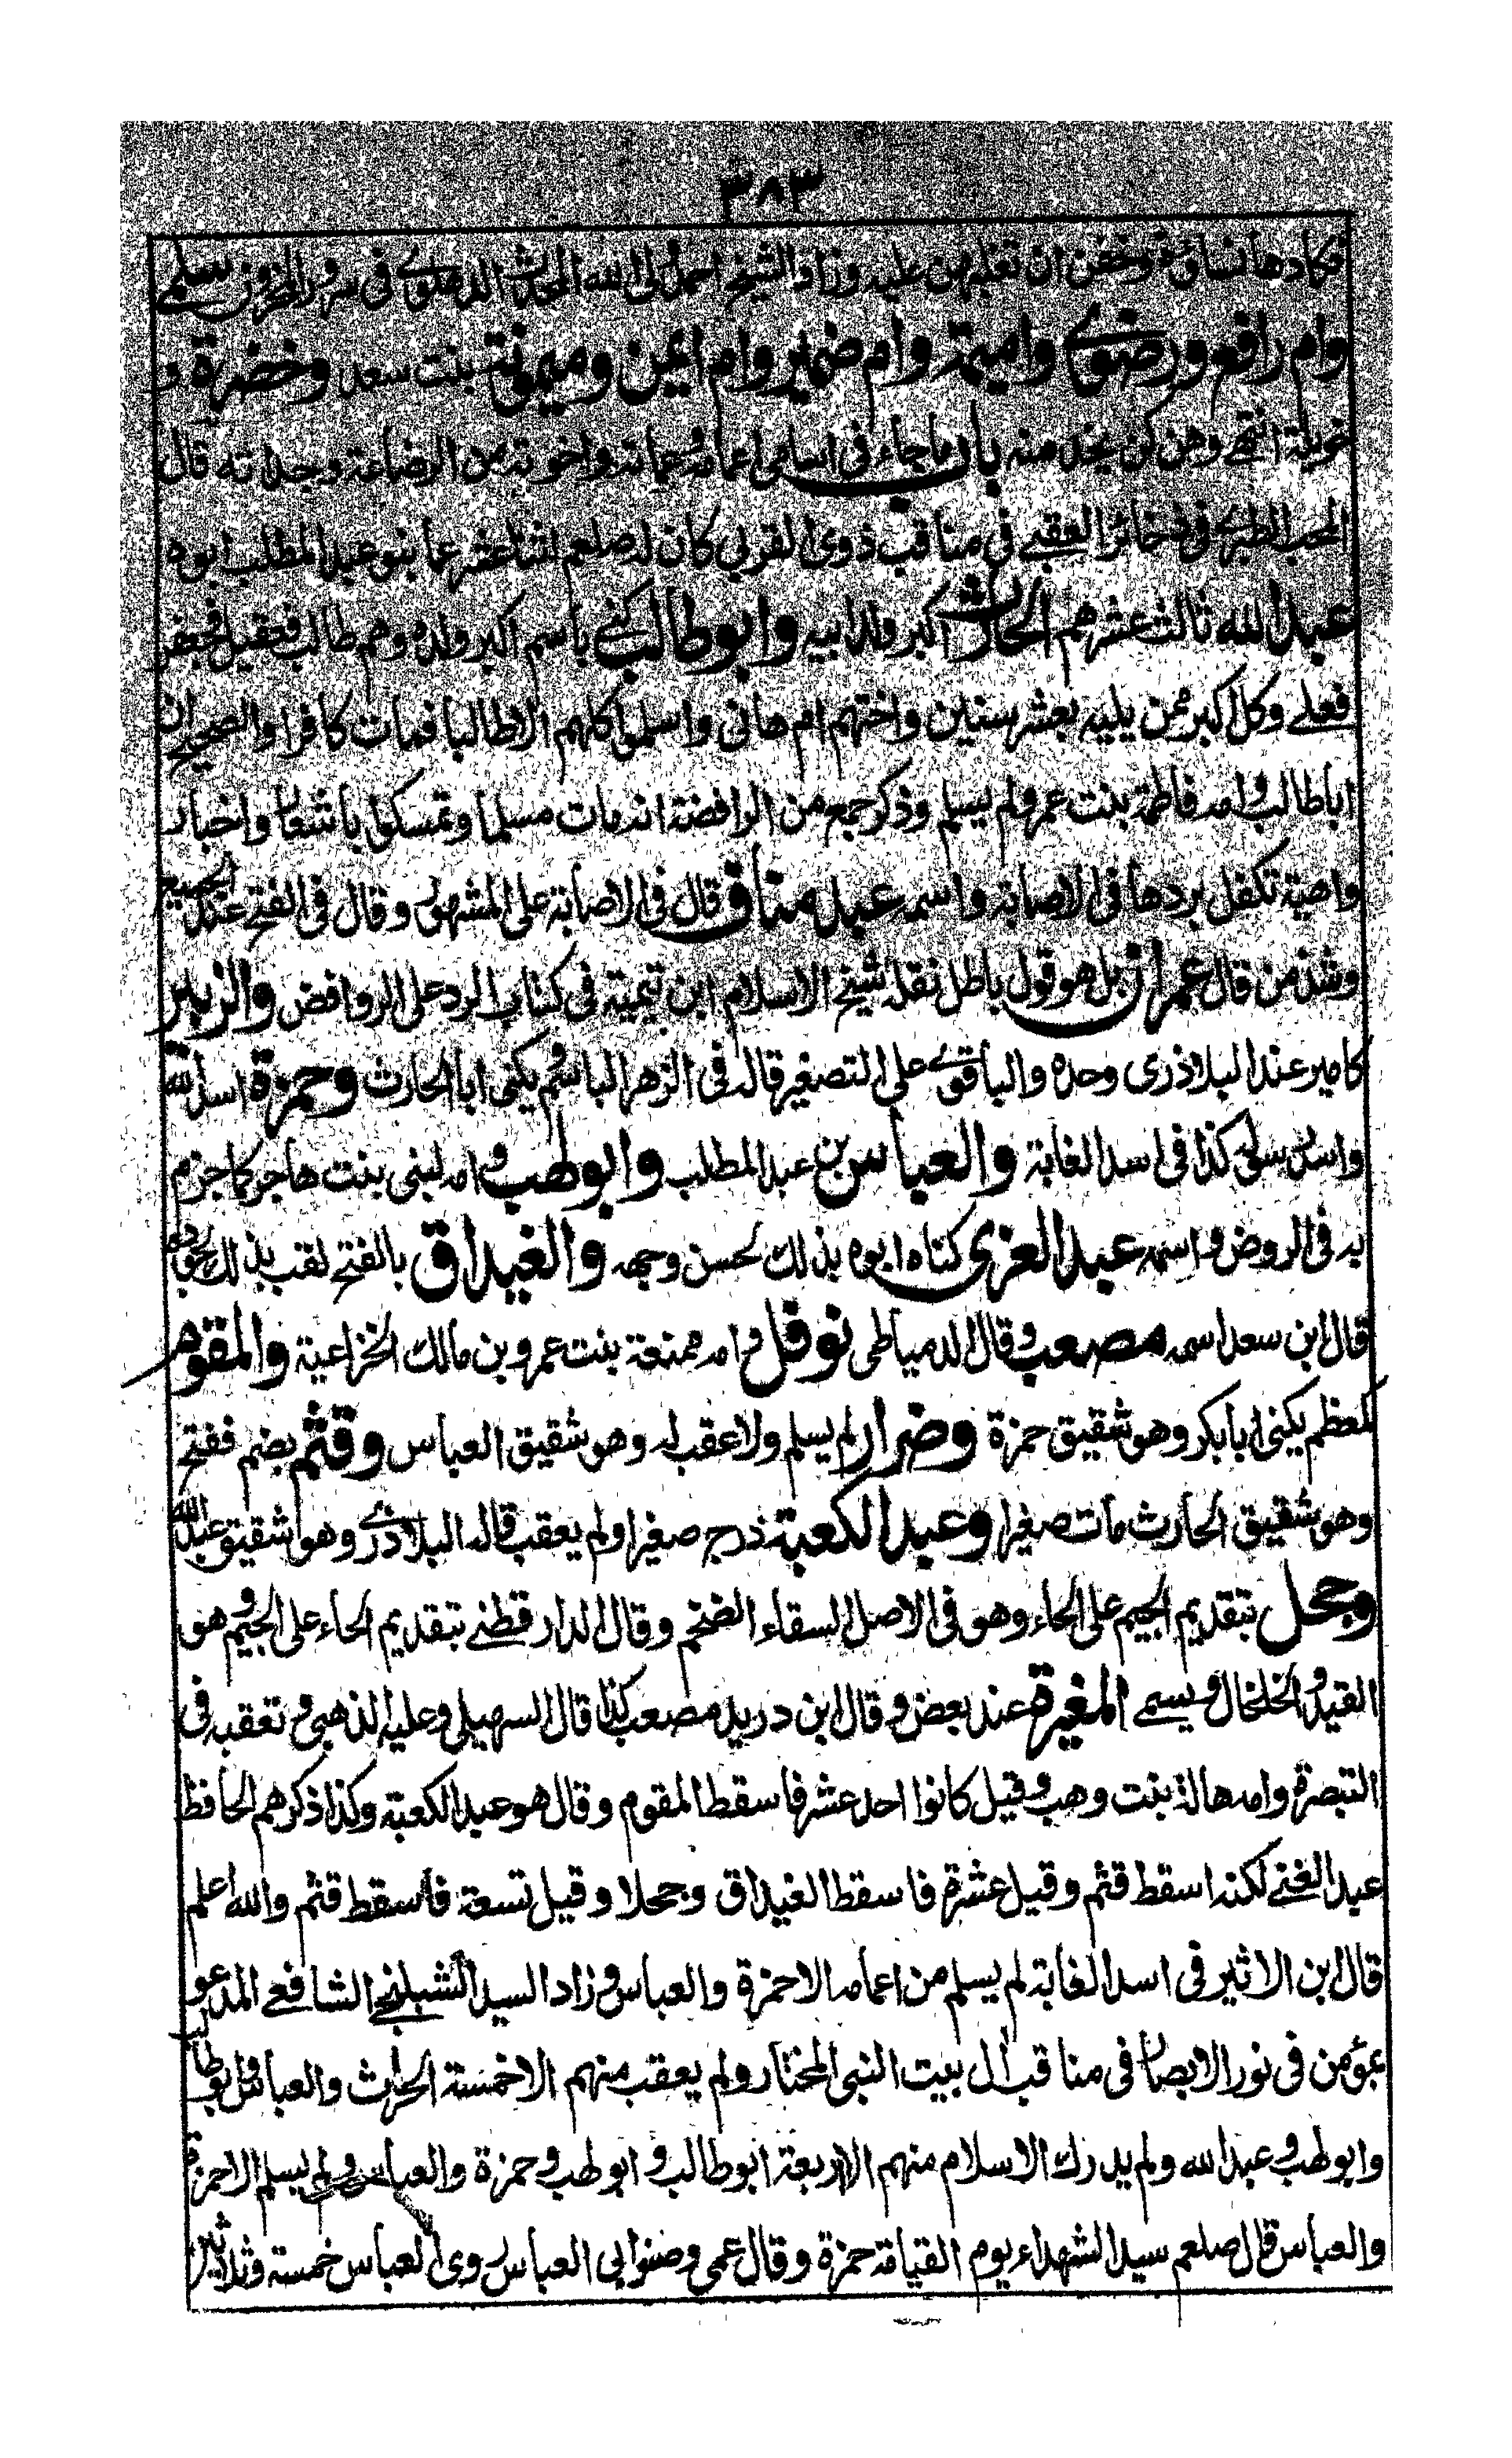 ٣٨٣
فكادها نساؤه وخفن ان تغلبهن عليه وزاد الشيخ احمد ولى الله المحدث الدهلوي في سرور المحزون سلمى
وام رافع ورضوى واميمة وام ضمير وام ايمن وميمونة بنت سعد وخضرة و
خويلة انتهى وهن كن يخدمنه باب ما جاء في اسامى اعمامه وعماته واخوته من الرضاعة وجداته قال
المحب الطبري في ذخائر العقبى في مناقب ذوى القربى كان له صلعم اثنا عشر عما بنو عبد المطلب ابوه
عبد الله ثالث عشرهم الحارث اكبر ولد ابيه وابو طالب كنى باسم اكبر ولده وهم طالب فعقيل فجعفر
فعلي وكل اكبر ممن يليه بعشر سنين واختهم ام هانى واسلموا كلهم الا طالبا فمات كافرا والصحيح ان
ابا طالب وامه فاطمة بنت عمرو لم يسلم وذكر جمع من الرافضة انه مات مسلما وتمسكوا باشعار واخبار
واهية تكفل بردها في الاصابة واسمه عبد مناف قال في الاصابة على المشهور وقال في الفتح عند الجميع
وشذ من قال عمران بل هو قول باطل نقله شيخ الاسلام ابن تيمية في كتاب الرد على الروافض والزبير
كامير عند البلاذرى وحده والباقون على التصغير قاله في الزهر الباسم يكنى ابا الحارث وحمزة اسد الله
واسد رسوله كذا في اسد الغابة والعباس بن عبد المطلب وابو لهب وامه لبنى بنت هاجر كما جزم
به في الروض واسمه عبد العزى كناه ابوه بذلك لحسن وجهه والغيداق بالفتح لقب بذلك لجوده
قال ابن سعد اسمه مصعب وقال الدمياطى نوفل وامه ممنعة بنت عمرو بن مالك الخزاعية والمقوم
كمعظم يكنى ابا بكر وهو شقيق حمزة وضرار لم يسلم ولا عقب له وهو شقيق العباس وقثم بضم ففتح
وهو شقيق الحارث مات صغيرا وعبد الكعبة درج صغيرا ولم يعقب قاله البلاذري وهو شقيق عبد الله
وجحل بتقديم الجيم على الحاء وهو في الاصل السقاء الضخم وقال الدارقطنى بتقديم الحاء على الجيم وهو
القيد والخلخال ويسمى المغيرة عند بعض وقال ابن دريد مصعب كذا قال السهيلى وعليه الذهبي وتعقبه في
التبصرة وامه هالة بنت وهب وقيل كانوا احد عشر فاسقط المقوم وقال هو عبد الكعبة وكذا ذكرهم الحافظ
عبد الغنى لكنه اسقط قثم وقيل عشرة فاسقط الغيداق وجحلا وقيل تسعة فاسقط قثم والله اعلم
قال ابن الاثير في اسد الغابة لم يسلم من اعمامه الا حمزة والعباس وزاد السيد الشبلنجى الشافعى المدعو
بمؤمن في نور الابصار في مناقب آل بيت النبي المختار ولم يعقب منهم الا خمسة الحارث والعباس وابو طالب
وابو لهب وعبد الله ولم يدرك الاسلام منهم الا اربعة ابو طالب وابو لهب وحمزة والعباس ولم يسلم الا حمزة
والعباس قال صلعم سيد الشهداء يوم القيامة حمزة وقال عمى وصنو ابى العباس روى العباس خمسة وثلاثين